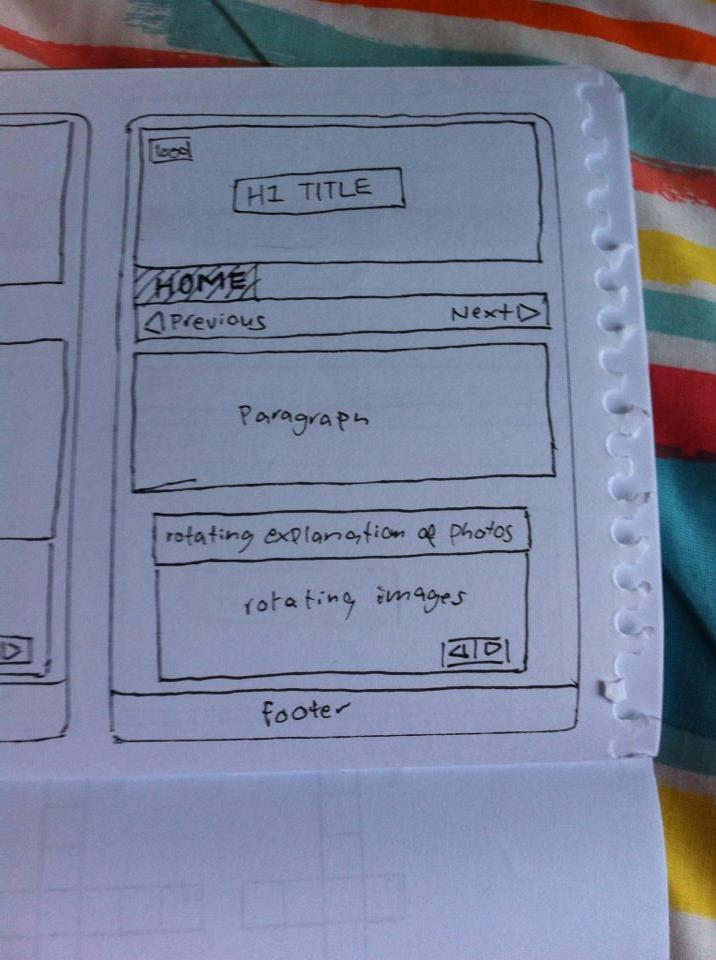 H1 TITLE
HOME
Previous Next
Paragraph
rotating explanation of photos
rotating images
footer